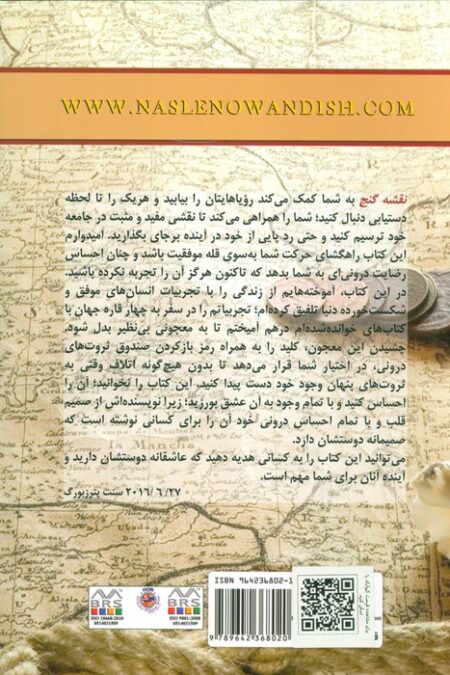 WWW.NASLENOWANDISH.COM
نقشه گنج به شما کمک می‌کند رؤیاهایتان را بیابید و هریک را تا لحظه
دستیابی دنبال کنید؛ شما را همراهی می‌کند تا نقشی مفید و مثبت در جامعه
خود ترسیم کنید و حتی رد پایی از خود در آینده برجای بگذارید. امیدوارم
این کتاب راهگشای حرکت شما به‌سوی قله موفقیت باشد و چنان احساس
رضایت درونی‌ای به شما بدهد که تاکنون هرگز آن را تجربه نکرده باشید.
در این کتاب، آموخته‌هایم از زندگی را با تجربیات انسان‌های موفق و
شکست‌خورده دنیا تلفیق کرده‌ام؛ تجربیاتم را در سفر به چهار قاره جهان با
کتاب‌های خوانده‌شده‌ام درهم آمیختم تا به معجونی بی‌نظیر بدل شود.
چشیدن این معجون، کلید را به همراه رمز بازکردن صندوق ثروت‌های
درونی، در اختیار شما قرار می‌دهد تا بدون هیچ‌گونه اتلاف وقتی به
ثروت‌های پنهان وجود خود دست پیدا کنید. این کتاب را نخوانید؛ آن را
احساس کنید و با تمام وجود به آن عشق بورزید؛ زیرا نویسنده‌اش از صمیم
قلب و با تمام احساس درونی خود آن را برای کسانی نوشته است که
صمیمانه دوستشان دارد.
می‌توانید این کتاب را به کسانی هدیه دهید که عاشقانه دوستشان دارید و
آینده آنان برای شما مهم است.
۲۰۱۶/۶/۲۷ سنت پترزبورگ
la Mancha
ISBN 964236802-1
9 789642 368020
BRS
ISO 10668:2010
0514031509
BRS
ISO 9001:2008
0514031509